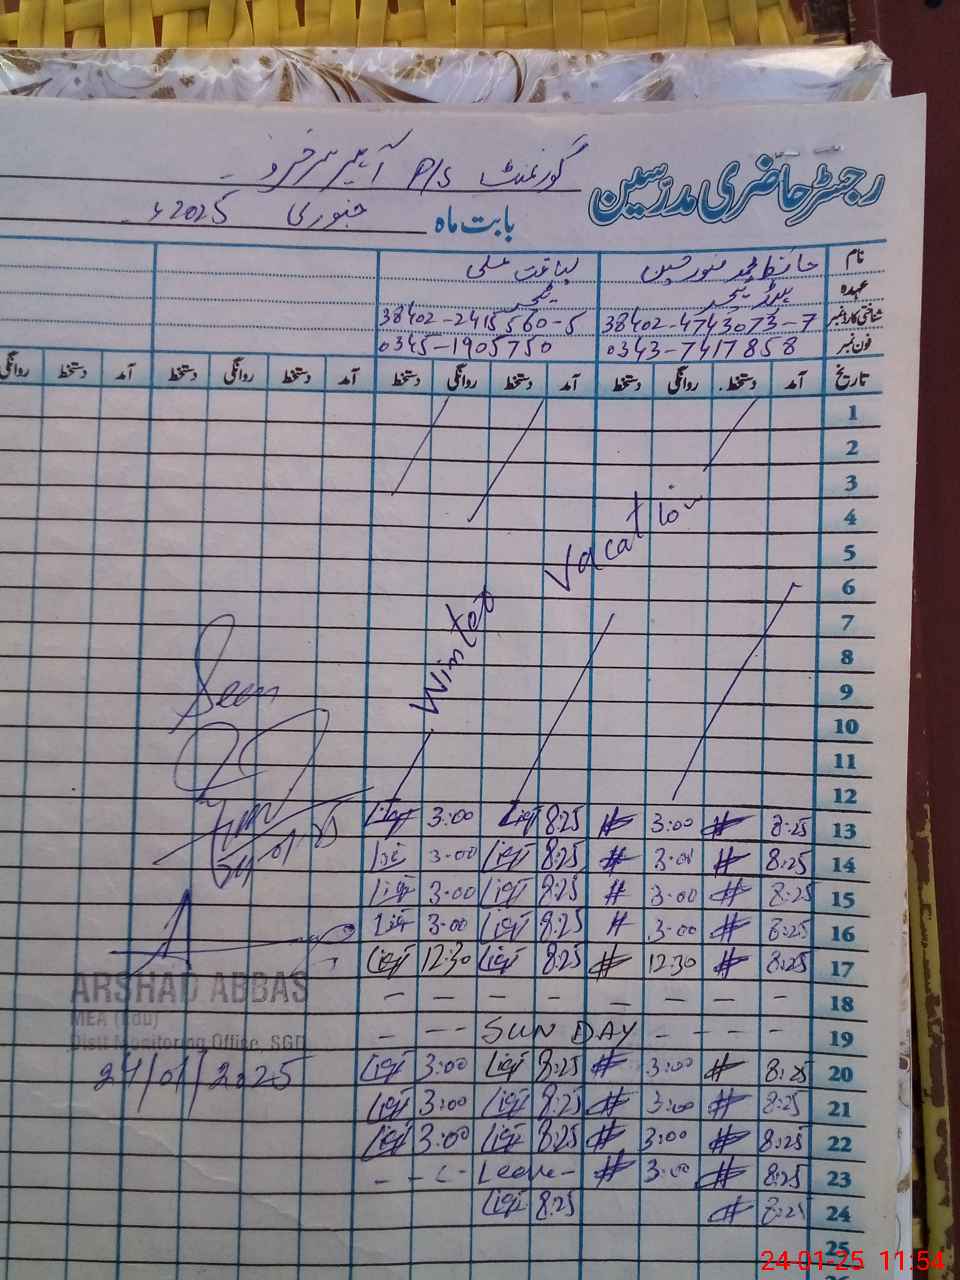 رجسٹر حاضری مدرسین
گورنمنٹ P/S
بابت ماہ جنوری 2025ء
نام حافظ محمد منور حسین لیاقت علی
عہدہ ہیڈ ٹیچر ٹیچر
شناختی کارڈ نمبر 38402-4743073-7 38402-2415560-5
فون نمبر 0343-7417858 0345-1905750
تاریخ آمد دستخط روانگی دستخط آمد دستخط روانگی دستخط آمد دستخط روانگی دستخط آمد دستخط روانگی
1
2
3
4
5
6
7
8
9
10
11
12
Winter Vacation
13 8:25 3:00 8:25 3:00
14 8:25 3:00 8:25 3:00
15 8:25 3:00 8:25 3:00
16 8:25 3:00 8:25 3:00
17 8:25 12:30 8:25 12:30
18 - - - - - - - -
19 - - - - SUNDAY - - -
20 8:25 3:00 8:25 3:00
21 8:25 3:00 8:25 3:00
22 8:25 3:00 8:25 3:00
23 8:25 3:00 - Leave - - -
24 8:25 8:25
25
Seen
24-01-25
ARSHAD ABBAS
MEA (Edu)
Distt Monitoring Office, SGD
24/01/2025
24-01-25 11:54